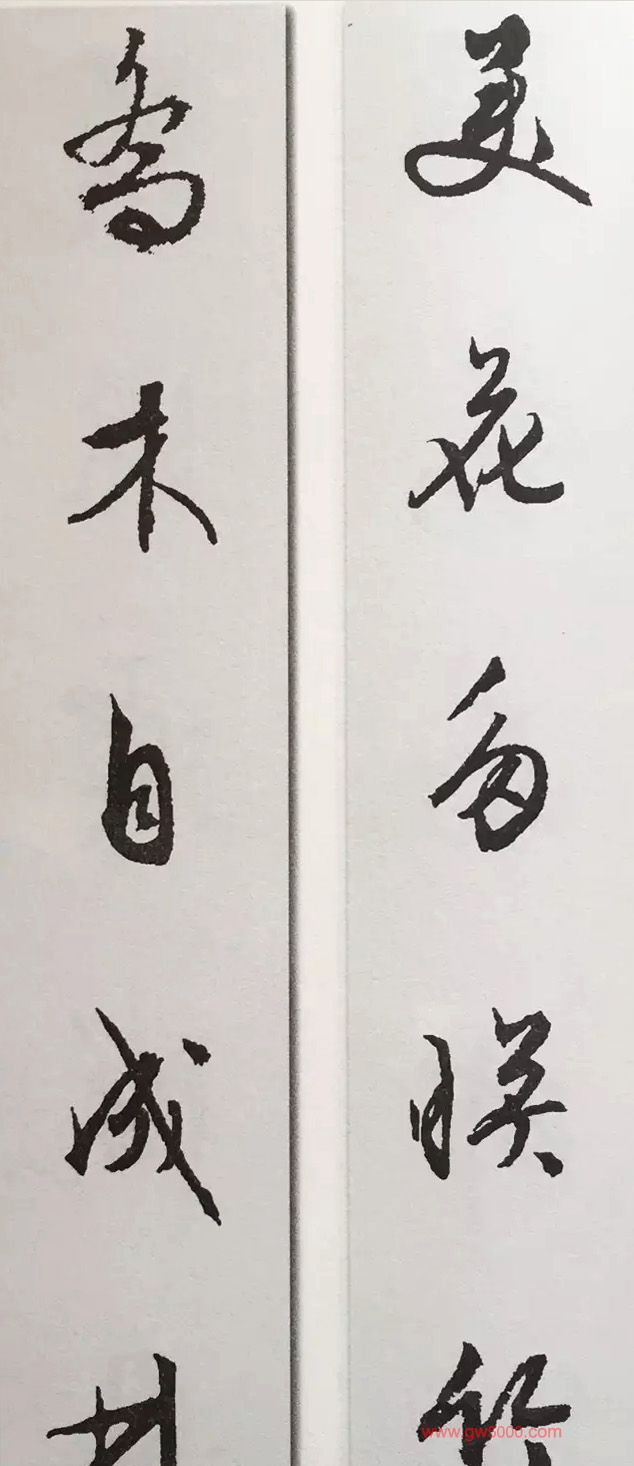 美花多暎竹
喬木自成
www.gw5000.com